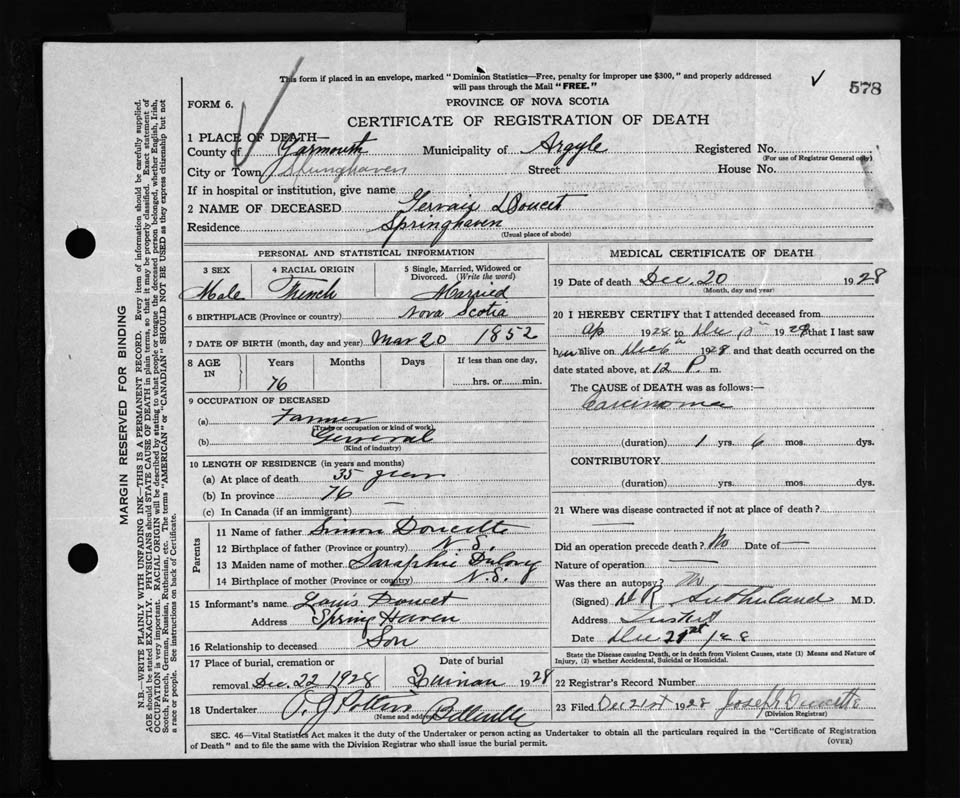 This form if placed in an envelope, marked "Dominion Statistics—Free, penalty for improper use $300," and properly addressed
will pass through the Mail "FREE."
578
FORM 6.
PROVINCE OF NOVA SCOTIA
CERTIFICATE OF REGISTRATION OF DEATH
1 PLACE OF DEATH—
County of Yarmouth Municipality of Argyle Registered No.
(For use of Registrar General only)
City or Town Springhaven Street House No.
If in hospital or institution, give name
2 NAME OF DECEASED Gervais Doucet
Residence Springhaven
(Usual place of abode)
PERSONAL AND STATISTICAL INFORMATION
3 SEX 4 RACIAL ORIGIN 5 Single, Married, Widowed or Divorced. (Write the word)
Male French Married
6 BIRTHPLACE (Province or country) Nova Scotia
7 DATE OF BIRTH (month, day and year) Mar 20 1852
8 AGE IN Years Months Days If less than one day,
76 hrs. or min.
9 OCCUPATION OF DECEASED
(a) Farmer
(Trade or occupation or kind of work)
(b) General
(Kind of industry)
10 LENGTH OF RESIDENCE (in years and months)
(a) At place of death 35 years
(b) In province 76
(c) In Canada (if an immigrant) —
Parents
11 Name of father Simon Doucette
12 Birthplace of father (Province or country) N.S.
13 Maiden name of mother Saraphie
14 Birthplace of mother (Province or country) N.S.
15 Informant's name Louis Doucet
Address Spring Haven
16 Relationship to deceased Son
17 Place of burial, cremation or Date of burial
removal Dec. 22 1928 Quinan 1928
18 Undertaker P. J. Pottier Belleville
(Name and address)
MEDICAL CERTIFICATE OF DEATH
19 Date of death Dec. 20 1928
(Month, day and year)
20 I HEREBY CERTIFY that I attended deceased from
Ap 1928 to Dec 1928 that I last saw
him alive on Dec 6th 1928 and that death occurred on the
date stated above, at 12 P. m.
The CAUSE of DEATH was as follows:—
Carcinoma
(duration) 1 yrs. 6 mos. dys.
CONTRIBUTORY
(duration) yrs. mos. dys.
21 Where was disease contracted if not at place of death?
—
Did an operation precede death? No Date of —
Nature of operation —
Was there an autopsy? No
(Signed) Sutherland M.D.
Address Tusket
Date Dec 21st
State the Disease causing Death, or in death from Violent Causes, state (1) Means and Nature of
Injury, (2) whether Accidental, Suicidal or Homicidal.
22 Registrar's Record Number
23 Filed Dec 21st 1928 Joseph Doucette
(Division Registrar)
SEC. 46—Vital Statistics Act makes it the duty of the Undertaker or person acting as Undertaker to obtain all the particulars required in the "Certificate of Registration
of Death" and to file the same with the Division Registrar who shall issue the burial permit.
(OVER)
MARGIN RESERVED FOR BINDING
N.B.—WRITE PLAINLY WITH UNFADING INK—THIS IS A PERMANENT RECORD. Every item of information should be carefully supplied.
AGE should be stated EXACTLY. PHYSICIANS should STATE CAUSE OF DEATH in plain terms, so that it may be properly classified. Exact statement of
OCCUPATION is very important. RACIAL ORIGIN will be described by stating to what people or tongue the deceased person belonged, whether English, Irish,
Scotch, French, German, Russian, Ruthenian, etc. The terms "AMERICAN" or "CANADIAN" SHOULD NOT BE USED as they express citizenship but not
a race or people. See instructions on back of Certificate.